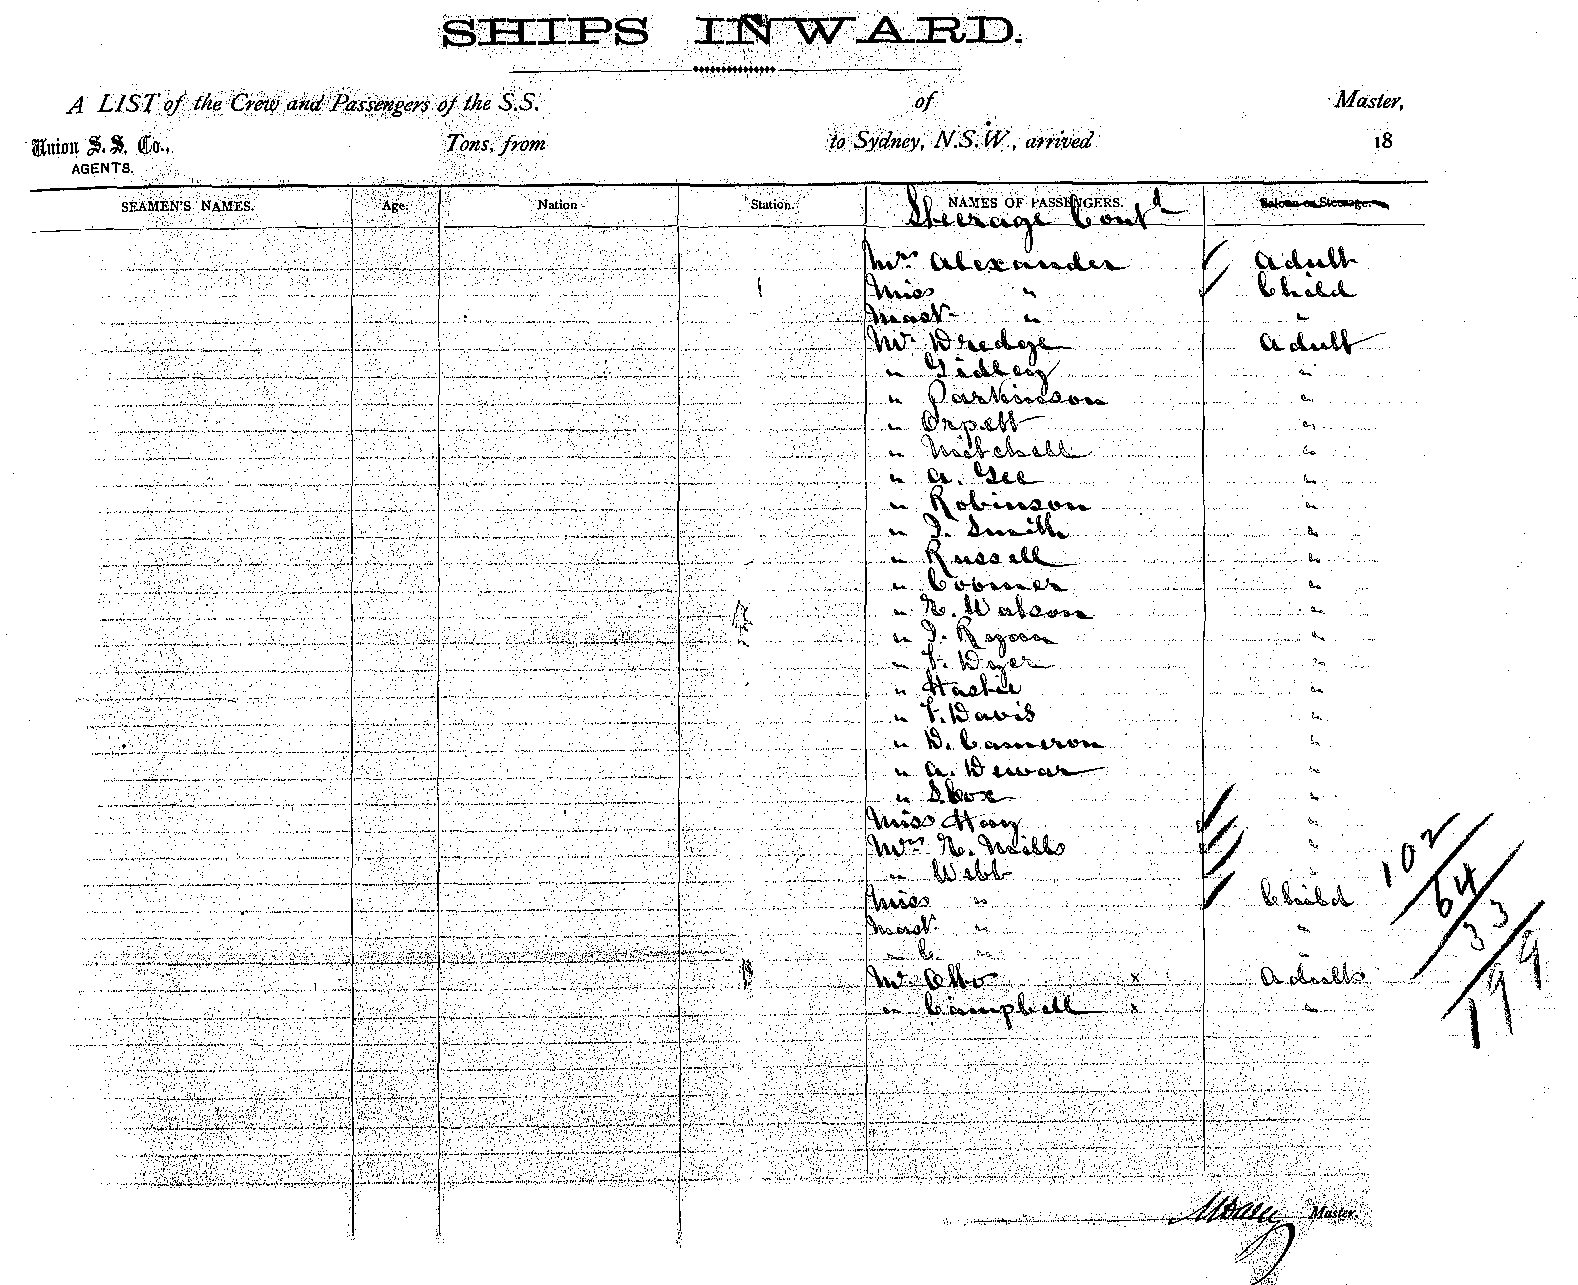 SHIPS INWARD.
A LIST of the Crew and Passengers of the S.S. of Master,
Union S. S. Co., Tons, from to Sydney, N.S.W., arrived 18
AGENTS.
SEAMEN'S NAMES. Age. Nation Station. NAMES OF PASSENGERS. Saloon or Steerage.
Steerage Contd
Mrs Alexander Adult
Miss " Child
Mast " "
Mr Dredge Adult
" Gidley "
" Parkinson "
" Orpett "
" Mitchell "
" A. Gee "
" Robinson "
" J. Smith "
" Russell "
" Coomer "
" E. Watson "
" J. "
" F. Dyer "
" Hastie "
" F. Davis "
" D. Cameron "
" A. Dewar "
" "
Miss Hay "
Mrs E. Mills "
" Webb "
Miss " Child
Mast " "
" C. " "
Mr Otto x Adults
" Campbell x "
102
64
33
199
Master.